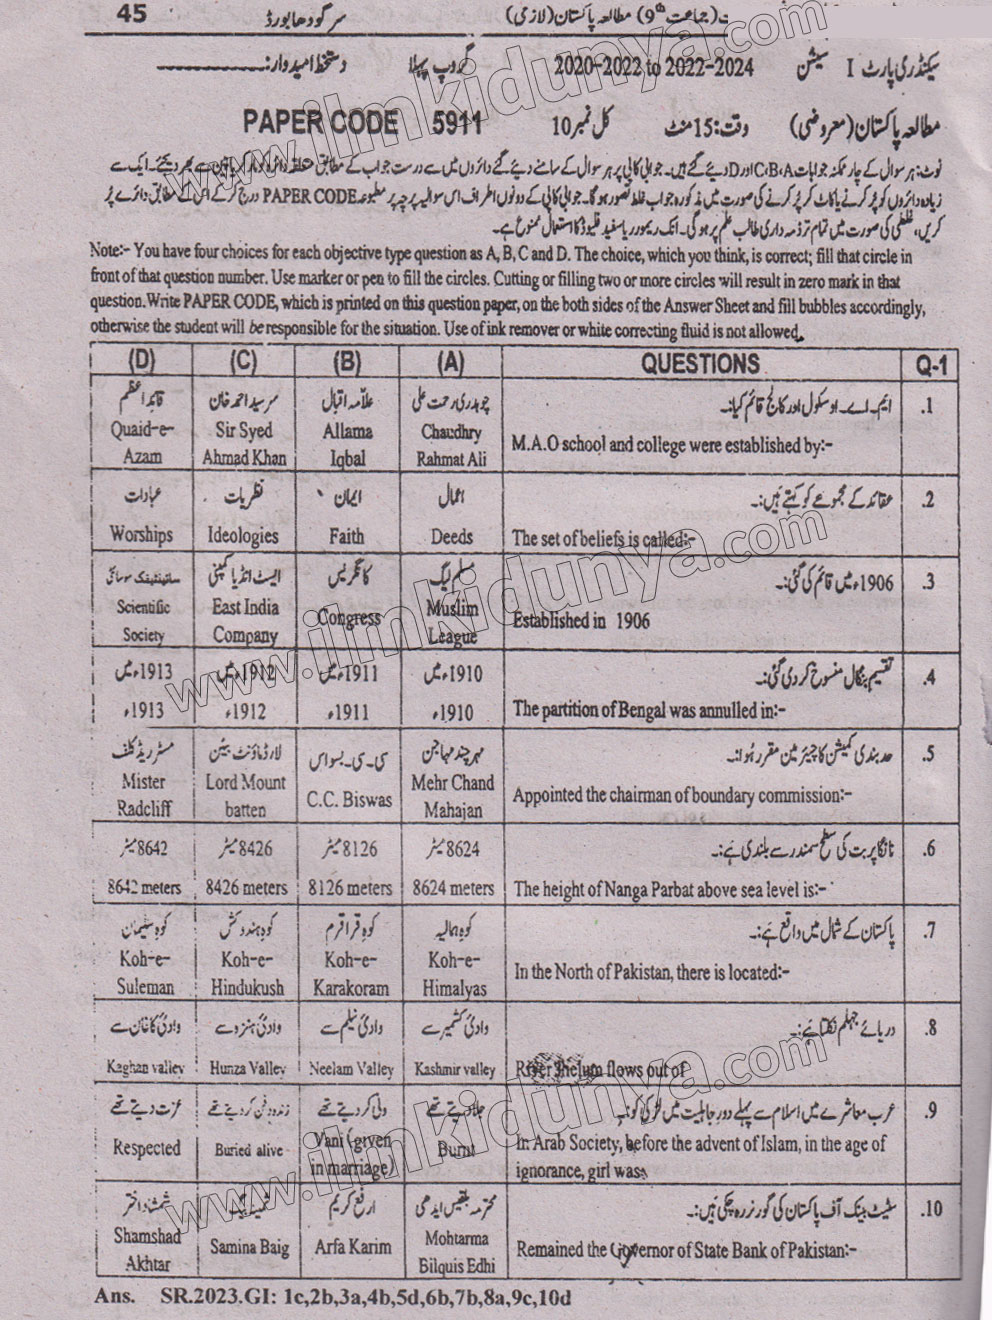 45 سرگودھا بورڈ (جماعت 9th) مطالعہ پاکستان (لازمی)
سیکنڈری پارٹ I سیشن 2020-2022 to 2022-2024 گروپ پہلا دستخط امیدوار:
مطالعہ پاکستان (معروضی) وقت: 15 منٹ کل نمبر 10 PAPER CODE 5911
نوٹ: ہر سوال کے چار ممکنہ جوابات A،B،C اور D دیئے گئے ہیں۔ جوابی کاپی پر ہر سوال کے سامنے دیئے گئے دائروں میں سے درست جواب کے مطابق متعلقہ دائرہ کو مارکر یا پین سے بھر دیجئے۔ ایک سے
زیادہ دائروں کو پُر کرنے یا کاٹ کر پُر کرنے کی صورت میں مذکورہ جواب غلط تصور ہوگا۔ جوابی کاپی کے دونوں اطراف اس سوالیہ پرچہ پر مطبوعہ PAPER CODE درج کر کے اس کے مطابق دائرے پُر
کریں، غلطی کی صورت میں تمام تر ذمہ داری طالب علم پر ہوگی۔ انک ریموور یا سفید فلیوڈ کا استعمال ممنوع ہے۔
Note:- You have four choices for each objective type question as A, B, C and D. The choice, which you think, is correct; fill that circle in
front of that question number. Use marker or pen to fill the circles. Cutting or filling two or more circles will result in zero mark in that
question.Write PAPER CODE, which is printed on this question paper, on the both sides of the Answer Sheet and fill bubbles accordingly,
otherwise the student will be responsible for the situation. Use of ink remover or white correcting fluid is not allowed.
(D) (C) (B) (A) QUESTIONS Q-1
قائدِاعظم سرسید احمد خان علامہ اقبال چوہدری رحمت علی ایم۔اے۔او سکول اور کالج قائم کیا:۔ .1
Quaid-e- Sir Syed Allama Chaudhry M.A.O school and college were established by:-
Azam Ahmad Khan Iqbal Rahmat Ali
عبادات نظریات ایمان اعمال عقائد کے مجموعے کو کہتے ہیں:۔ .2
Worships Ideologies Faith Deeds The set of beliefs is called:-
سائینٹیفک سوسائٹی ایسٹ انڈیا کمپنی کانگریس مسلم لیگ 1906ء میں قائم کی گئی:۔ .3
Scientific East India Congress Muslim Established in 1906
Society Company League
1913ء میں 1912ء میں 1911ء میں 1910ء میں تقسیم بنگال منسوخ کر دی گئی:۔ .4
1913ء 1912ء 1911ء 1910ء The partition of Bengal was annulled in:-
مسٹر ریڈ کلف لارڈ ماؤنٹ بیٹن سی۔سی۔بسواس مہر چند مہاجن حد بندی کمیشن کا چیئرمین مقرر ہوا:۔ .5
Mister Lord Mount C.C. Biswas Mehr Chand Appointed the chairman of boundary commission:-
Radcliff batten Mahajan
8642 میٹر 8426 میٹر 8126 میٹر 8624 میٹر نانگا پربت کی سطح سمندر سے بلندی ہے:۔ .6
8642 meters 8426 meters 8126 meters 8624 meters The height of Nanga Parbat above sea level is:-
کوہِ سلیمان کوہِ ہندوکش کوہِ قراقرم کوہِ ہمالیہ پاکستان کے شمال میں واقع ہے:۔ .7
Koh-e- Koh-e- Koh-e- Koh-e- In the North of Pakistan, there is located:-
Suleman Hindukush Karakoram Himalyas
وادیٔ کاغان سے وادیٔ ہنزہ سے وادیٔ نیلم سے وادیٔ کشمیر سے دریائے جہلم نکلتا ہے:۔ .8
Kaghan valley Hunza Valley Neelam Valley Kashmir valley River Jhelum flows out of
عزت دیتے تھے زندہ دفن کر دیتے تھے ونی کر دیتے تھے جلا دیتے تھے عرب معاشرے میں اسلام سے پہلے دورِ جاہلیت میں لڑکی کو:۔ .9
Respected Buried alive Vani (given Burnt In Arab Society, before the advent of Islam, in the age of
in marriage) ignorance, girl was:
شمشاد اختر ثمینہ بیگ ارفع کریم محترمہ بلقیس ایدھی سٹیٹ بینک آف پاکستان کی گورنر رہ چکی ہیں:۔ .10
Shamshad Samina Baig Arfa Karim Mohtarma Remained the Governor of State Bank of Pakistan:-
Akhtar Bilquis Edhi
Ans. SR.2023.GI: 1c,2b,3a,4b,5d,6b,7b,8a,9c,10d
www.ilmkidunya.com
www.ilmkidunya.com
www.ilmkidunya.com